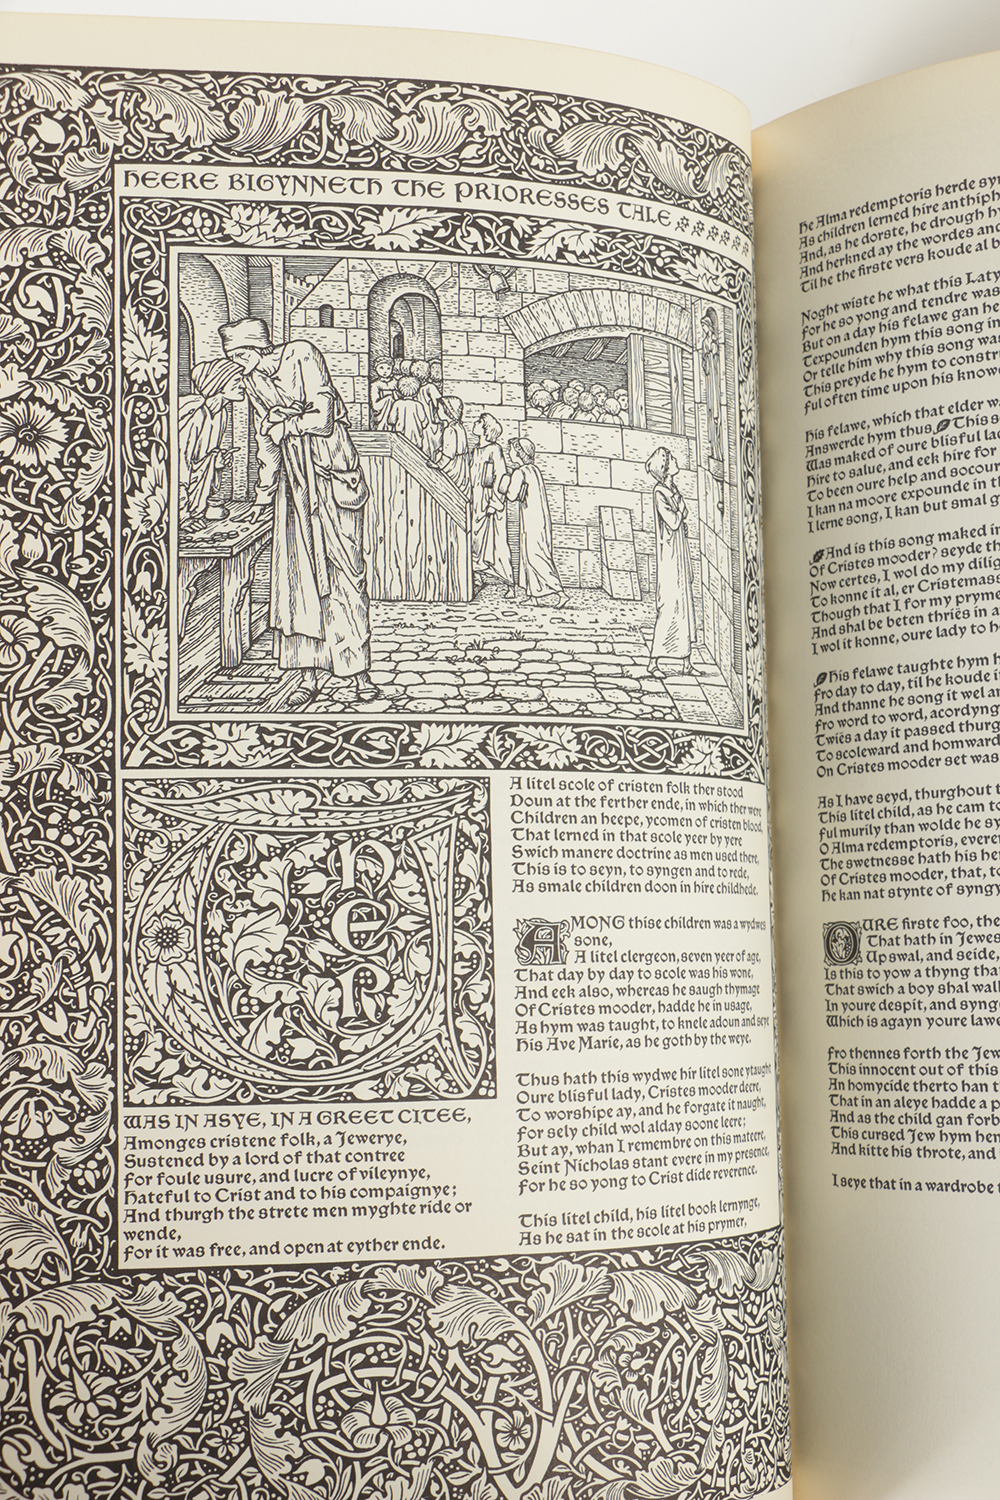 HEERE BIGYNNETH THE PRIORESSES TALE
THER
WAS IN ASYE, IN A GREET CITEE,
Amonges cristene folk, a Jewerye,
Sustened by a lord of that contree
For foule usure, and lucre of vileynye,
Hateful to Crist and to his compaignye;
And thurgh the strete men myghte ride or
wende,
For it was free, and open at eyther ende.
A litel scole of cristen folk ther stood
Doun at the ferther ende, in which ther were
Children an heepe, ycomen of cristen blood,
That lerned in that scole yeer by yere
Swich manere doctrine as men used there,
This is to seyn, to syngen and to rede,
As smale children doon in hire childhede.
AMONG thise children was a wydwes
sone,
A litel clergeon, seven yeer of age,
That day by day to scole was his wone,
And eek also, whereas he saugh thymage
Of Cristes mooder, hadde he in usage,
As hym was taught, to knele adoun and seye
His Ave Marie, as he goth by the weye.
Thus hath this wydwe hir litel sone ytaught
Oure blisful lady, Cristes mooder deere,
To worshipe ay, and he forgate it naught,
For sely child wol alday soone leere;
But ay, whan I remembre on this mateere,
Seint Nicholas stant evere in my presence,
For he so yong to Crist dide reverence.
This litel child, his litel book lernynge,
As he sat in the scole at his prymer,
He Alma redemptoris herde
As children lerned hire
And, as he dorste, he drough
And herkned ay the wordes and
Til he the firste vers koude al
Noght wiste he what this
For he so yong and tendre was
But on a day his felawe gan he
Texpounden hym this song in
Or telle him why this song
This preyde he hym to
ful often time upon his
His felawe, which that elder
Answerde hym thus, This
Was maked of oure blisful
Hire to salue, and eek hire for
To been oure help and
I kan na moore expounde in
I lerne song, I kan but smal
And is this song maked in
Of Cristes mooder? seyde
Now certes, I wol do my
To konne it al, er
Though that I for my
And shal be beten thriës in
I wol it konne, oure lady to
His felawe taughte hym
Fro day to day, til he koude
And thanne he song it wel
Fro word to word,
Twiës a day it passed
To scoleward and homward
On Cristes mooder set was
As I have seyd, thurghout
This litel child, as he cam to
Ful murily than wolde he
O Alma redemptoris,
The swetnesse hath his
Of Cristes mooder, that, to
He kan nat stynte of
OURE firste foo, the
That hath in Jewes
Up swal, and seide,
Is this to yow a thyng
That swich a boy shal
In youre despit, and
Which is agayn youre
Fro thennes forth the
This innocent out of this
An homycide therto han
That in an aleye hadde a
And as the child gan
This cursed Jew hym
And kitte his throte, and
I seye that in a wardrobe